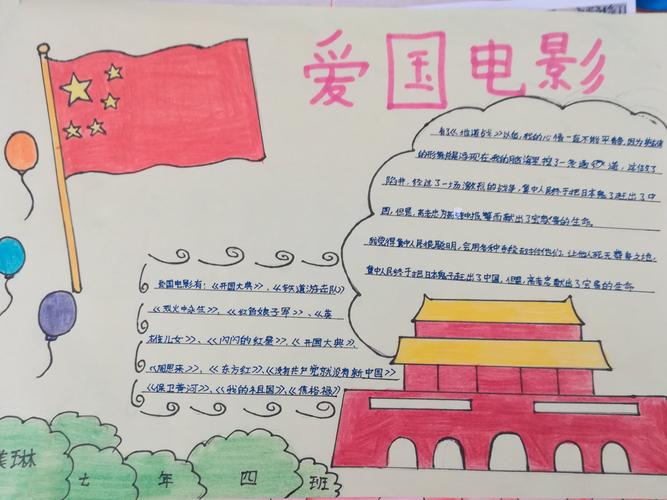 爱国电影
看了《地道战》以后,我的心情一直不能平静,因为
的形象总是浮现在我的脑海里挖了一条通道,
陷井,经过了一场激烈的战争,冀中人民终于把日本鬼子赶出了中
国,但是,高老忠为报警而献出了宝贵的生命。
我觉得冀中人民很聪明,会用各种手段对付他们,让他人死无葬身之地,
冀中人民终于把日本鬼子赶出了中国,但是,高老忠献出了宝贵的生命
爱国电影有:《开国大典》、《铁道游击队》
《烈火中永生》,《红色娘子军》、《英
雄儿女》、《闪闪的红星》,《开国大典》,
《周恩来》,《东方红》,《没有共产党就没有新中国》
《保卫黄河》,《我的祖国》,《焦裕禄》
琳
七年四班